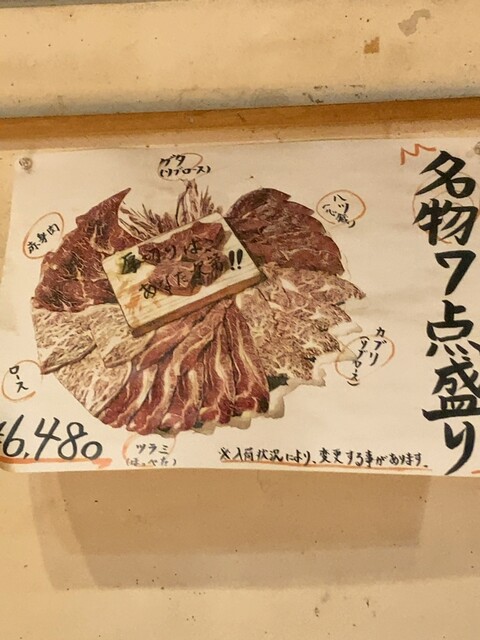 名物7点盛り
ゲタ
(リブロース)
ハツ
(心臓)
赤身肉
カブリ
(リブロース)
ロース
ツラミ
(ほっぺた)
¥6,480
※入荷状況により、変更する事があります。